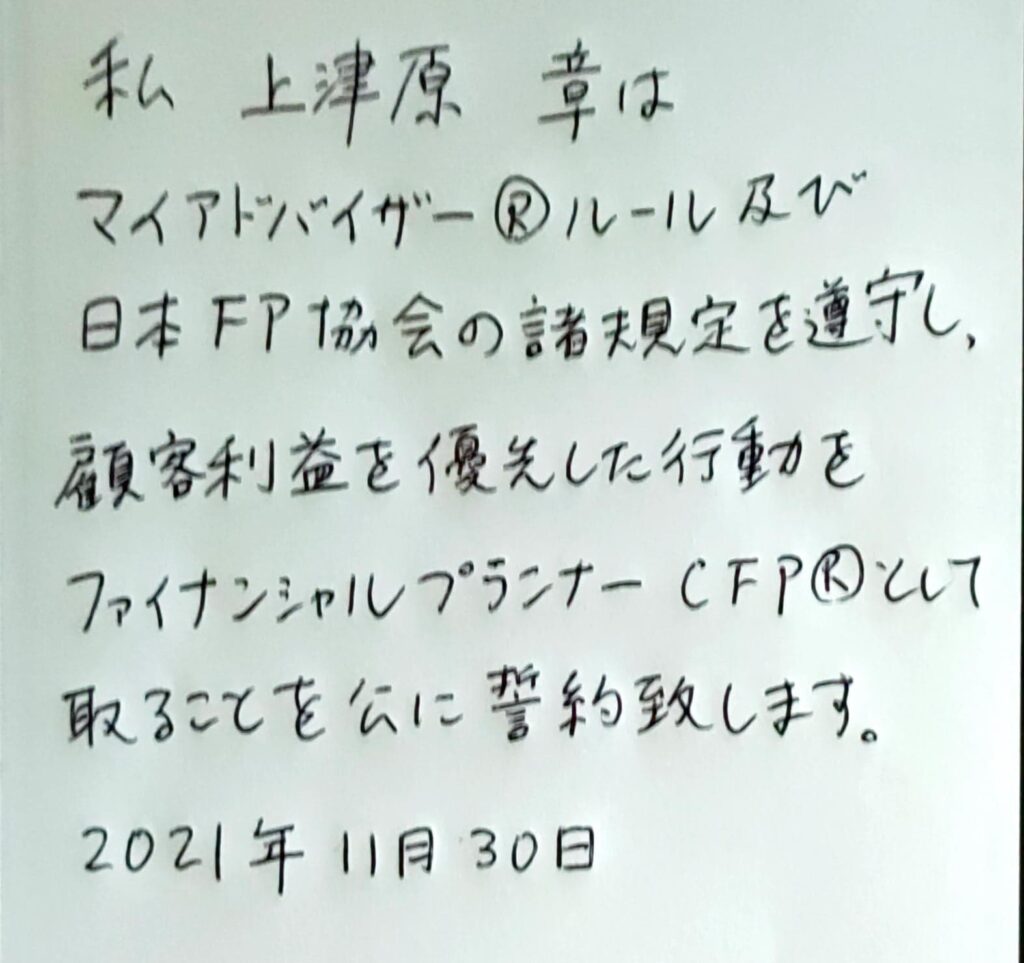 私 上津原 章は
マイアドバイザー®ルール及び
日本FP協会の諸規定を遵守し、
顧客利益を優先した行動を
ファイナンシャルプランナーCFP®として
取ることを公に誓約致します。
2021年11月30日